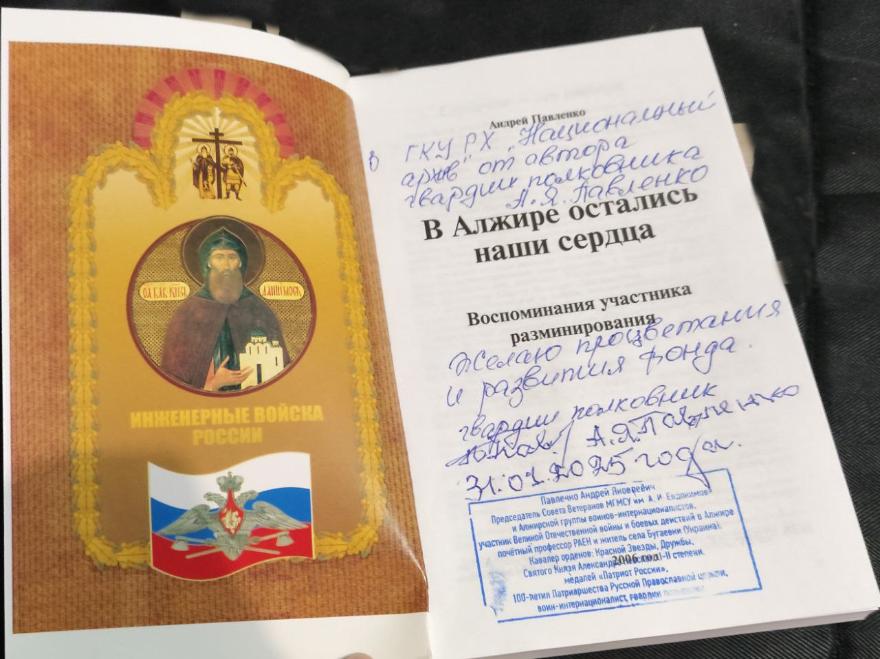 ИНЖЕНЕРНЫЕ ВОЙСКА
РОССИИ
Андрей Павленко
В ГКУ РХ "Национальный
архив" от автора
гвардии полковника
А.Я. Павленко
В Алжире остались
наши сердца
Воспоминания участника
разминирования
Желаю процветания
и развития фонда.
гвардии полковник
А.Я.Павленко
31.01.2025 года.
Павлечно Андрей Яковревич
Председатель Совета Ветеранов МГМСУ им А. И. Евдокимова
и Алжирской группы воинов-интернационалистов,
участник Великой Отечественной войны и боевых действий в Алжире
почётный профессор РАЕН и житель села Бугаевки (Украина).
Кавалер орденов: Красной Звезды, Дружбы,
Святого Князя Александра I-II степени.
2006 год
медалей «Патриот России»,
100-летия Патриаршества Русской Православной церкви,
воин-интернационалист, гвардии